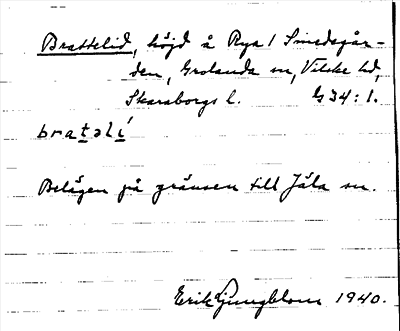 Brattelid, höjd å Rya 1 Smedsgår-
den, Grolanda sn, Vilske hd,
Skaraborgs l. G 34:1.
bratəlí
Belägen på gränsen till Jäla sn.
Erik Ljungblom 1940.